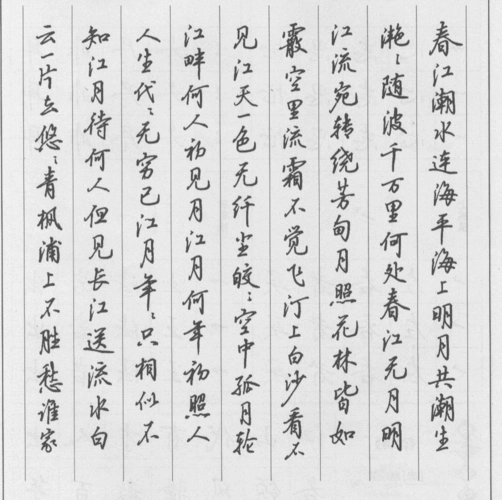 春江潮水连海平海上明月共潮生
滟〻随波千万里何处春江无月明
江流宛转绕芳甸月照花林皆如
霰空里流霜不觉飞汀上白沙看不
见江天一色无纤尘皎〻空中孤月轮
江畔何人初见月江月何年初照人
人生代〻无穷已江月年〻只相似不
知江月待何人但见长江送流水白
云一片去悠〻青枫浦上不胜愁谁家